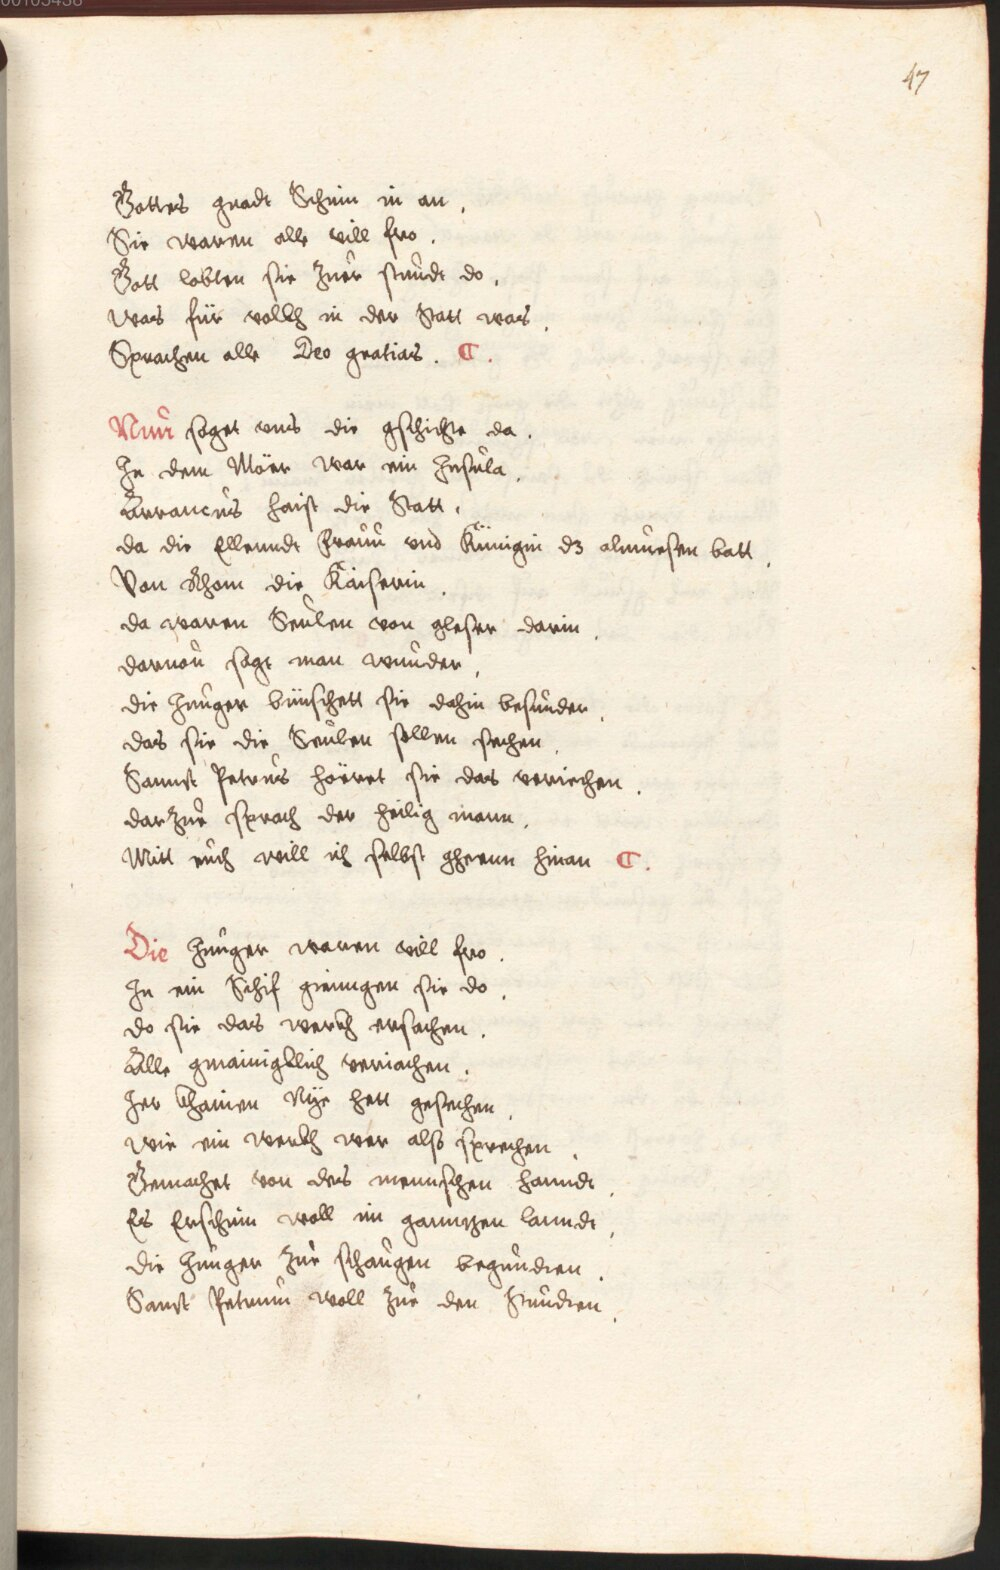 00105438
47
Gottes gnadt Schein in an,
Sie waren alle vill fro.
Gott lobten sie Zuer stundt do,
was für vollch in der Statt was,
Sprachen alle Deo gratias. C.
Nun saget uns die gschichte da.
In dem Möer war ein Insula,
Arrancus haist die Statt,
da die Ellenndt Frauu und Künigin dz almuesen batt,
Von Rhom die Kaiserin,
da waren Seülen von gleser darin,
darvon sagt man wunder,
die Junger wünschett sie dahin besunder,
das sie die Seülen sollen sechen,
Sannst Petrus höeret sie das veriechen,
dar Zue sprach der heilig mann,
Mitt euch will ich selbst gheenn hinan C.
Die Junger waren vill fro,
In ein Schif gienngen sie do,
do sie das werckh ersachen,
Alle gmainigkhlich veriachen,
Ier khainen Nye hett gesechen,
wie ein werckh wer also sprechen,
Gemachet von des mennschen hanndt,
Es Erschein woll im ganntzen lanndt,
Die Junger Zue schaugen begundten,
Sanst Petrum woll Zue den Stundten,